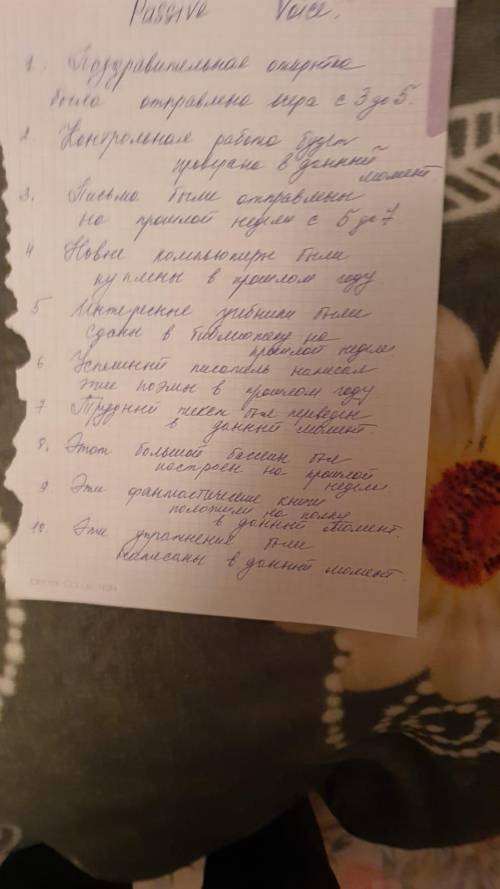 Passive Voice.
1. Поздравительная открытка
была отправлена вчера с 3 до 5.
2. Контрольная работа будет
проверена в данный
момент
3. Письма были отправлены
на прошлой неделе с 5 до 7
4 Новые компьютеры были
куплены в прошлом году
5 Интересные учебники были
сданы в библиотеку на
прошлой неделе
6 Успешный писатель написал
эти поэмы в прошлом году
7 Трудный текст был переведен
в данный момент.
8. Этот большой бассейн был
построен на прошлой
неделе
9 Эти фантастические книги
положили на полки
в данный момент.
10. Эти упражнения были
написаны в данный момент.